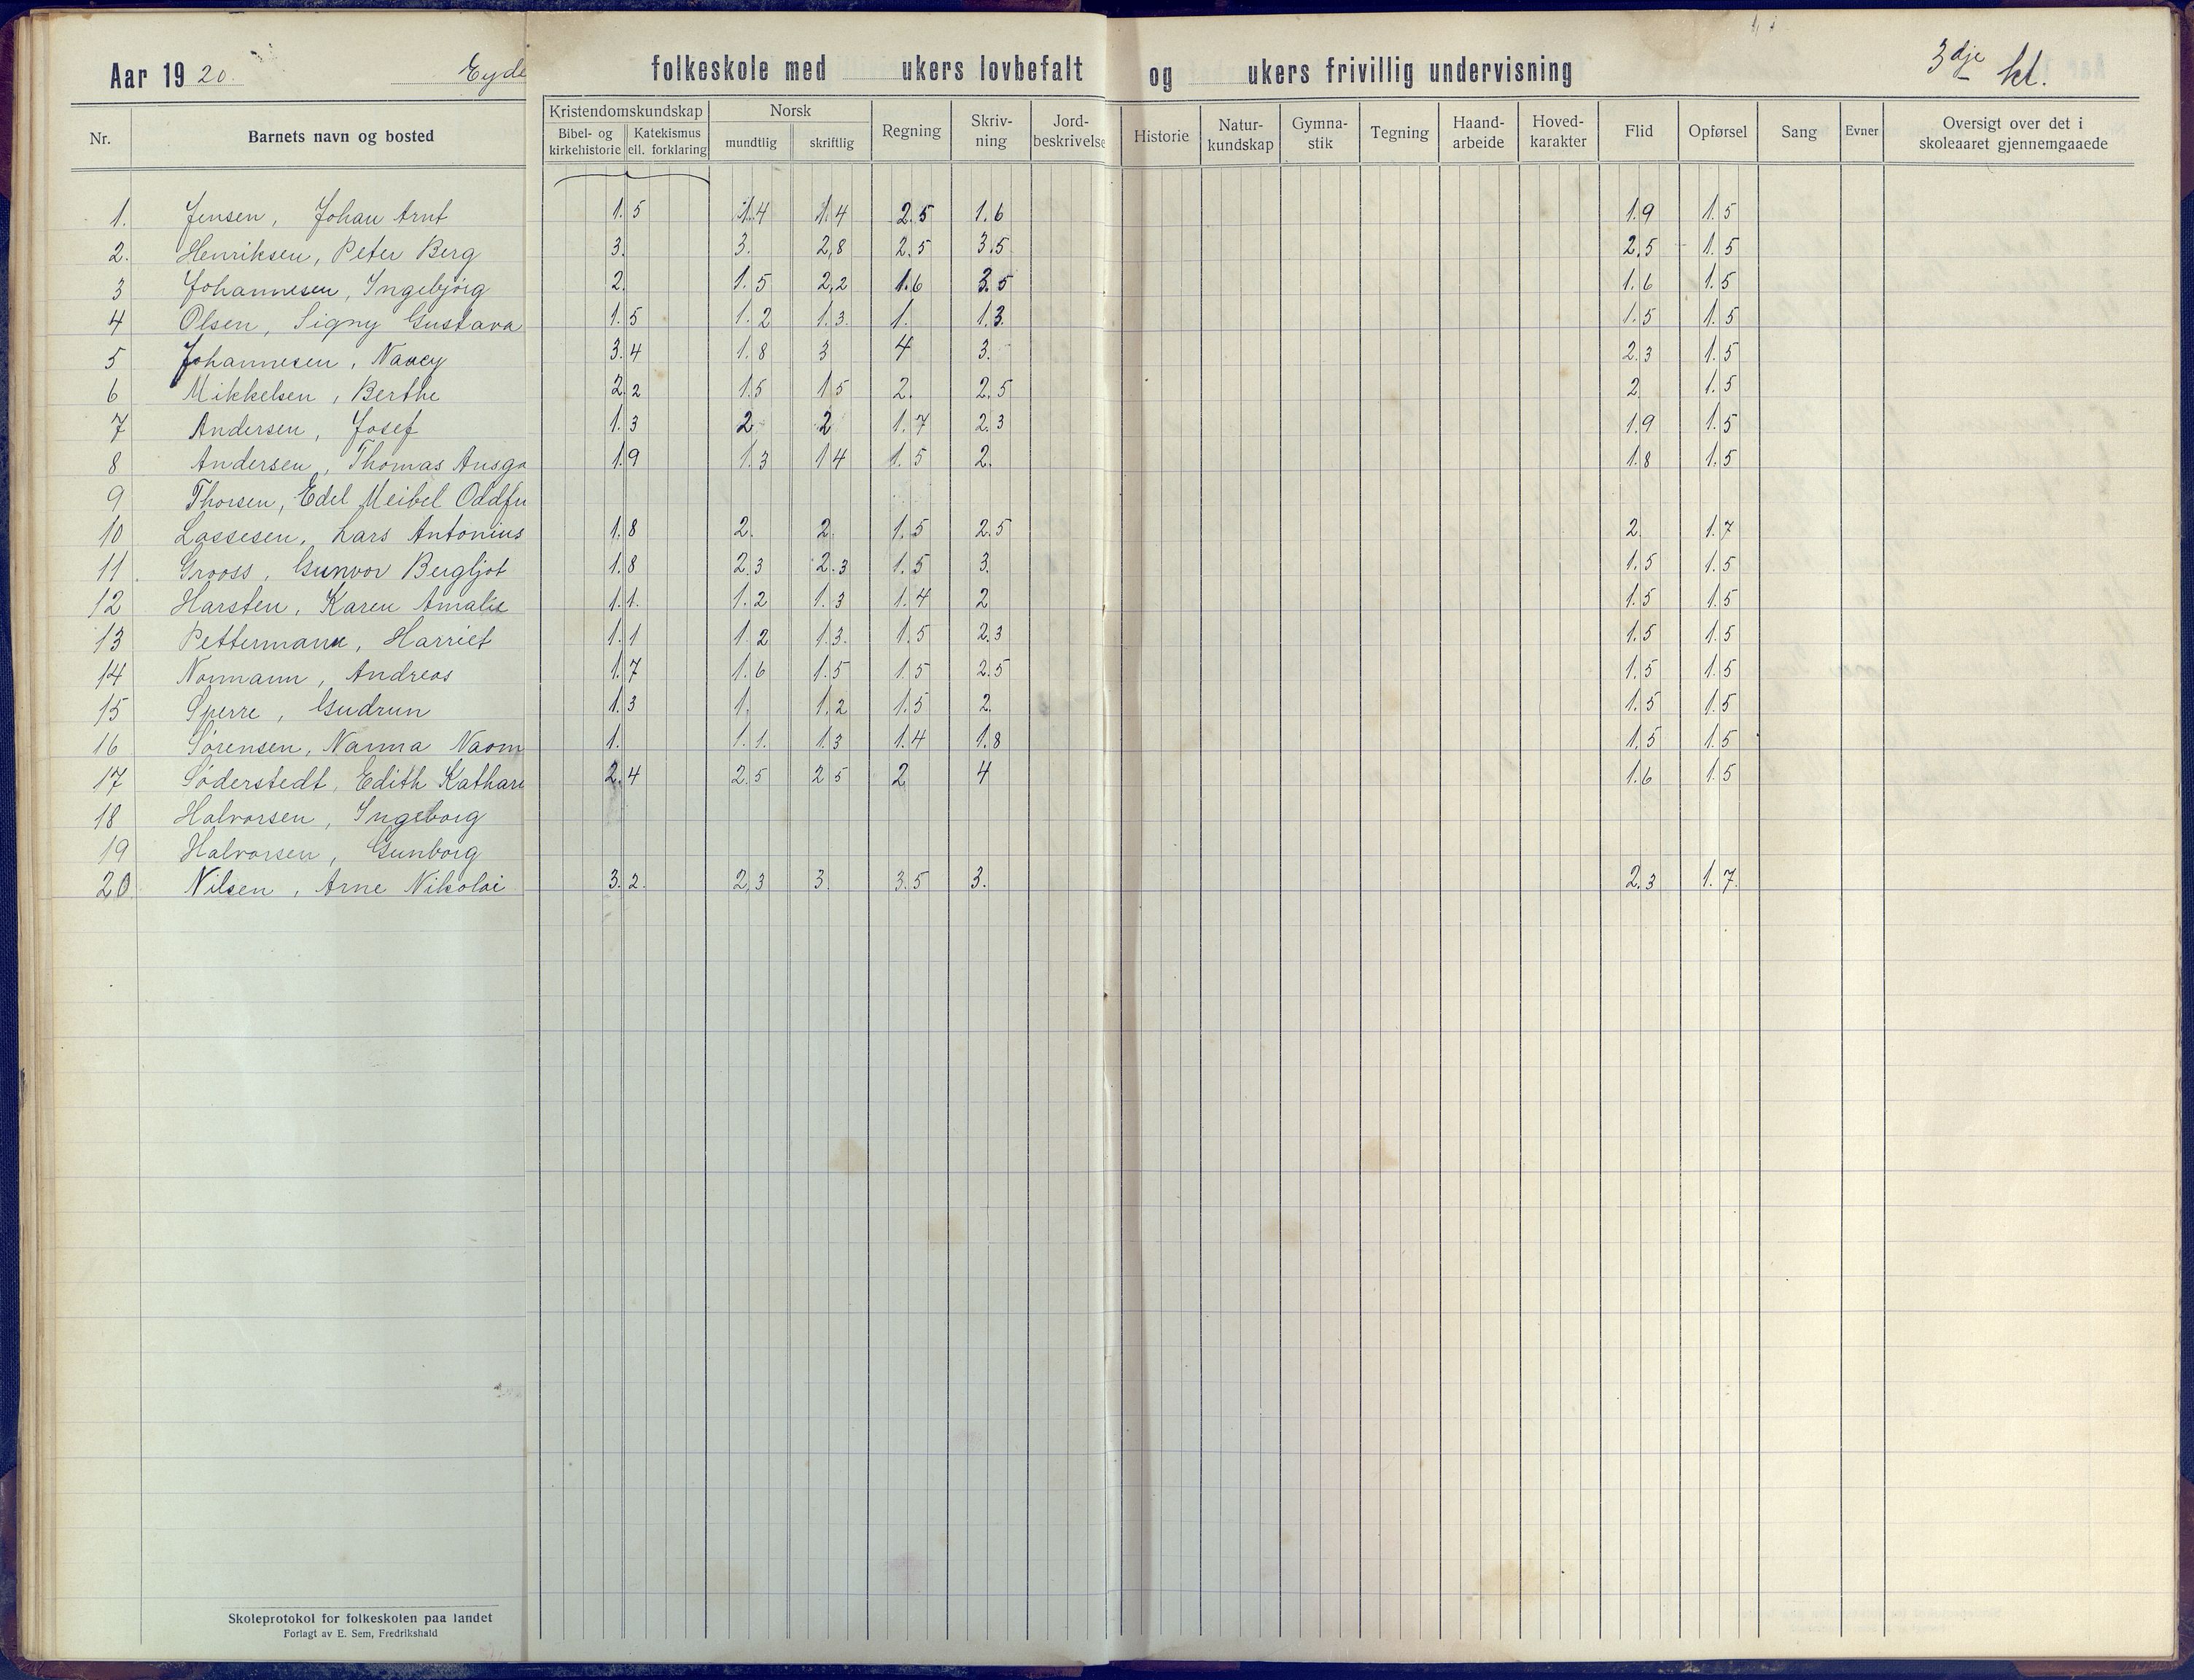 Aar 1920. Eyde folkeskole med ukers lovbefalt og ukers frivillig undervisning 3dje kl.
Nr. Barnets navn og bosted Kristendomskundskap Bibel- og kirkehistorie Katekismus ell. forklaring Norsk mundtlig skriftlig Regning Skriv-ning Jord-beskrivelse Historie Natur-kundskap Gymna-stik Tegning Haand-arbeide Hoved-karakter Flid Opførsel Sang Evner Oversigt over det i skoleaaret gjennemgaaede
1. Jensen, Johan Arnt 1.5 1.4 1.4 2.5 1.6 1.9 1.5
2. Henriksen, Peter Berg 3. 3. 2,8 2.5 3.5 2.5 1.5
3 Johannesen, Ingebjörg 2. 1.5 2,2 1.6 3.5 1.6 1.5
4 Olsen, Signy Gustava 1.5 1.2 1.3. 1. 1.3. 1.5 1.5
5 Johannesen, Nancy 3.4 1.8 3 4 3. 2.3 1.5
6 Mikkelsen, Berthe 2.2 1.5 1 5 2. 2.5 2 1.5
7 Andersen, Josef 1.3 2 2 1.7 2.3 1.9 1.5
8 Andersen, Thomas Ansga 1.9 1.3 1 4 1.5 2. 1.8 1.5
9 Thorsen, Edel Meibel Oddfu
10 Lassesen, Lars Antonius 1.8 2. 2. 1.5 2.5 2. 1.7
11. Grooss, Gunvor Bergljot 1.8 2.3 2.3 1.5 3. 1.5 1.5
12 Harsten, Karen Amalie 1.1. 1.2 1.3 1.4 2 1.5 1.5
13 Pettermann, Harriet 1.1 1 2 1.3. 1.5 2.3 1.5 1.5
14 Normann, Andreas 1.7 1.6 1.5 1.5 2.5 1.5 1.5
15 Sperre, Gudrun 1.3 1. 1.2 1.5 2. 1.5 1.5
16 Sørensen, Nanna Naom 1. 1.1. 1.3 1.4 1.8 1.5 1.5
17 Söderstedt, Edith Kathari 2.4 2.5 2 5 2 4 1.6 1.5
18 Halvorsen, Ingeborg
19 Halvorsen, Gunborg
20. Nilsen, Arne Nikolai 3.2. 2,3 3. 3.5 3. 2.3 1.7.
Skoleprotokol for folkeskolen paa landet
Forlagt av E. Sem, Fredrikshald